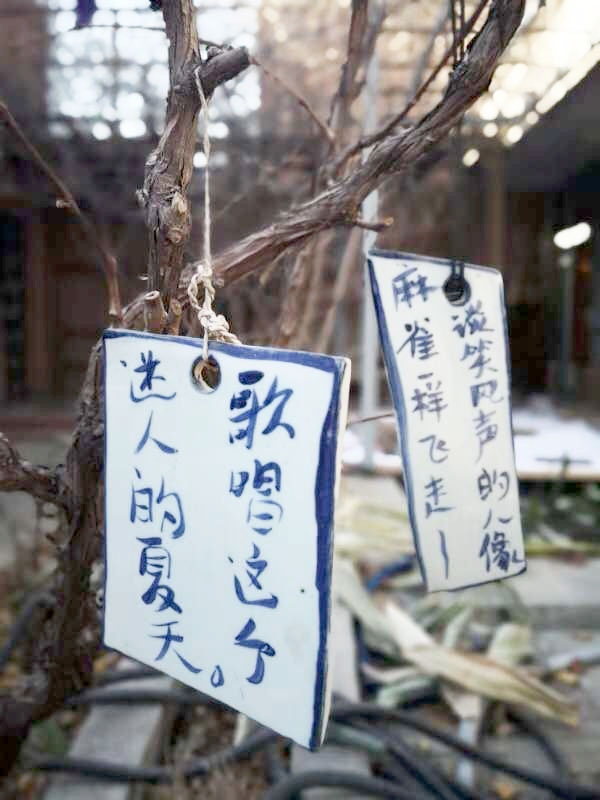 谈笑风声的人像
麻雀一样飞走—
歌唱这个
迷人的夏天。